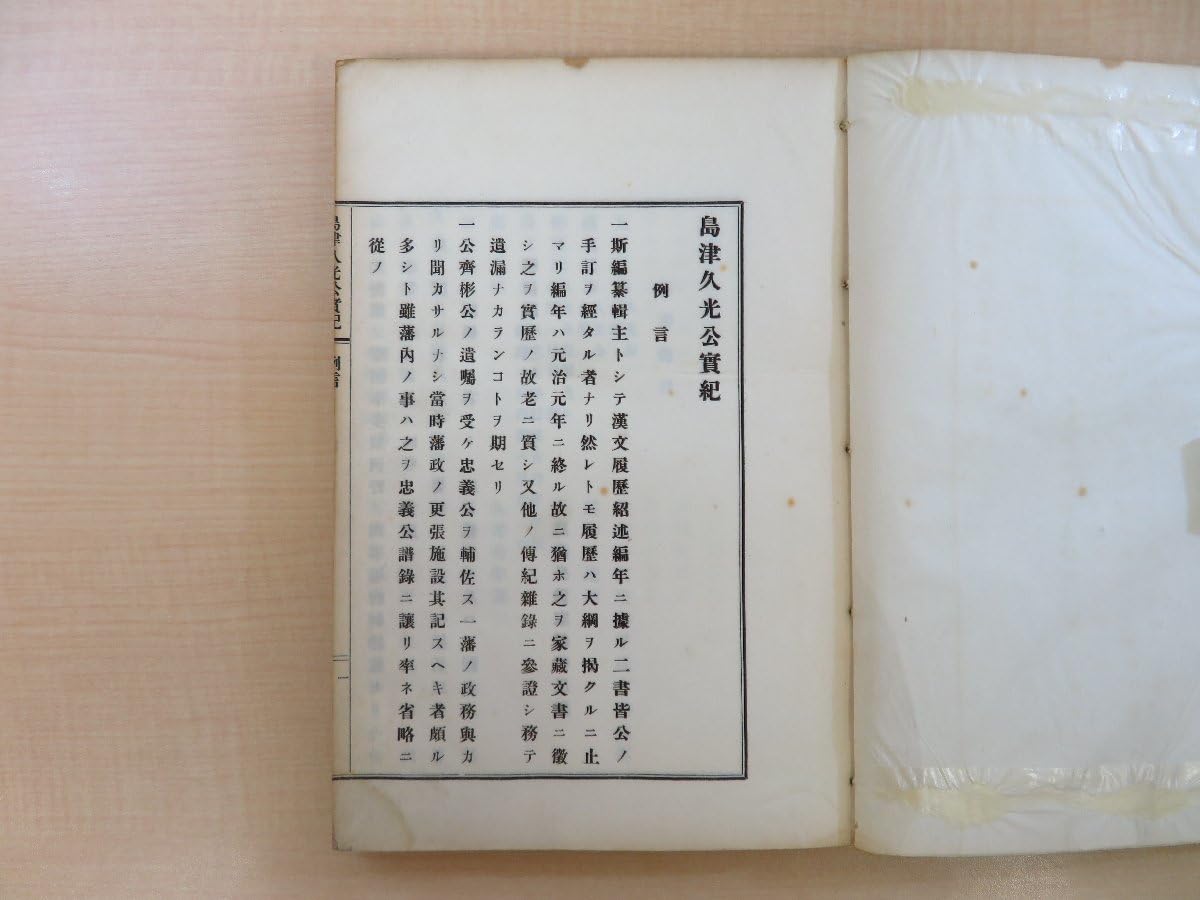 島津久光公實紀
例言
一斯編纂輯主トシテ漢文履歷紹述編年ニ據ル二書皆公ノ
手訂ヲ經タル者ナリ然レトモ履歷ハ大綱ヲ揭クルニ止
マリ編年ハ元治元年ニ終ル故ニ猶ホ之ヲ家藏文書ニ徵
シ之ヲ實歷ノ故老ニ質シ又他ノ傳紀雜錄ニ參證シ務テ
遺漏ナカランコトヲ期セリ
一公齊彬公ノ遺囑ヲ受ケ忠義公ヲ輔佐ス一藩ノ政務與カ
リ聞カサルナシ當時藩政ノ更張施設其記スヘキ者頗ル
多シト雖藩內ノ事ハ之ヲ忠義公譜錄ニ讓リ率ネ省略ニ
從フ
島津久光公實紀 例言 一